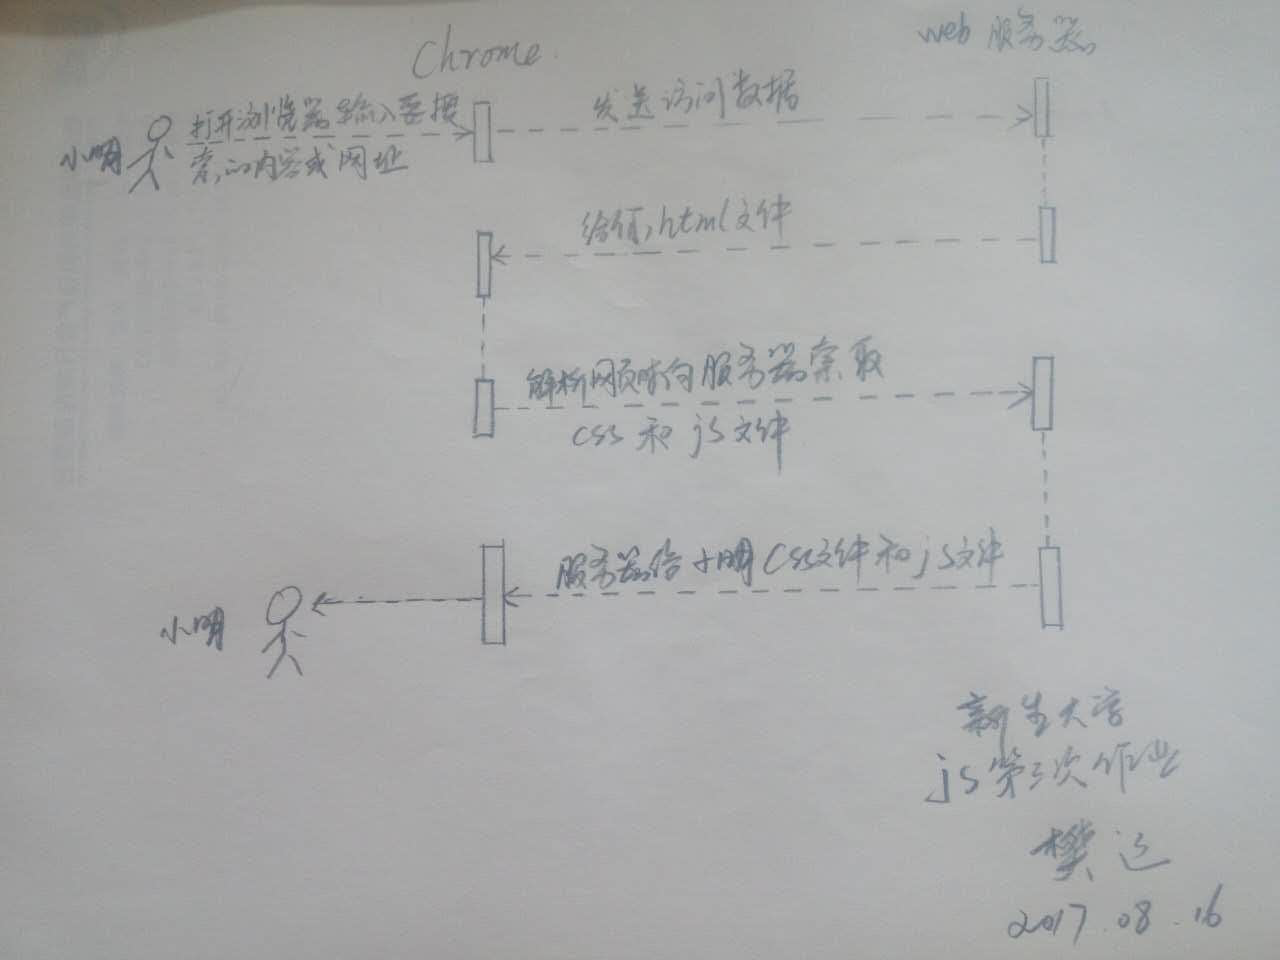 Chrome
web 服务器
小明
打开浏览器输入要搜
索的内容或网址
发送访问数据
给值html文件
解析网页时向服务器索取
css 和 js文件
服务器给小明css文件和js文件
小明
新生大学
js第三次作业
樊
2017.08.16